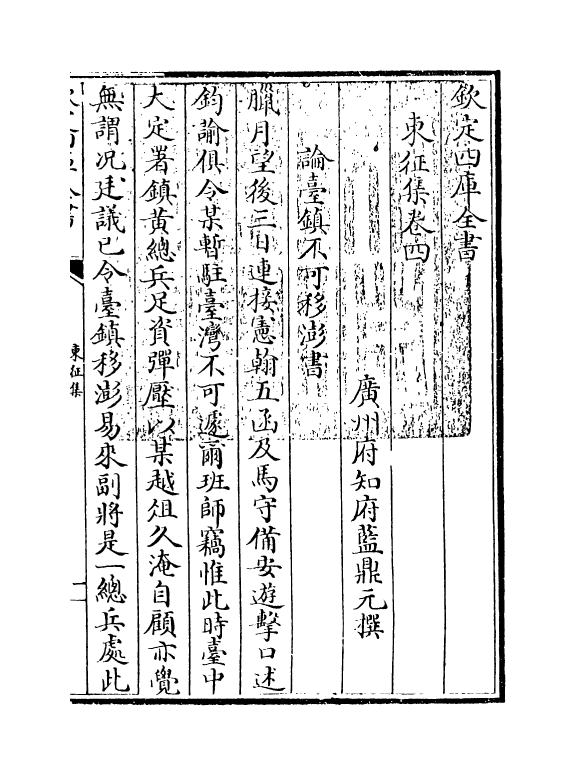 欽定四庫全書
東征集卷四
廣州府知府藍鼎元撰
論臺鎮不可移澎書
臘月望後三日連接憲翰五函及馬守備安遊擊口述
鈞諭俱令某暫駐臺灣不可遽爾班師竊惟此時臺中
大定署鎮黃總兵足資彈壓以某越俎久淹自顧亦覺
無謂况廷議已令臺鎮移澎易來副將是一總兵處此
東征集